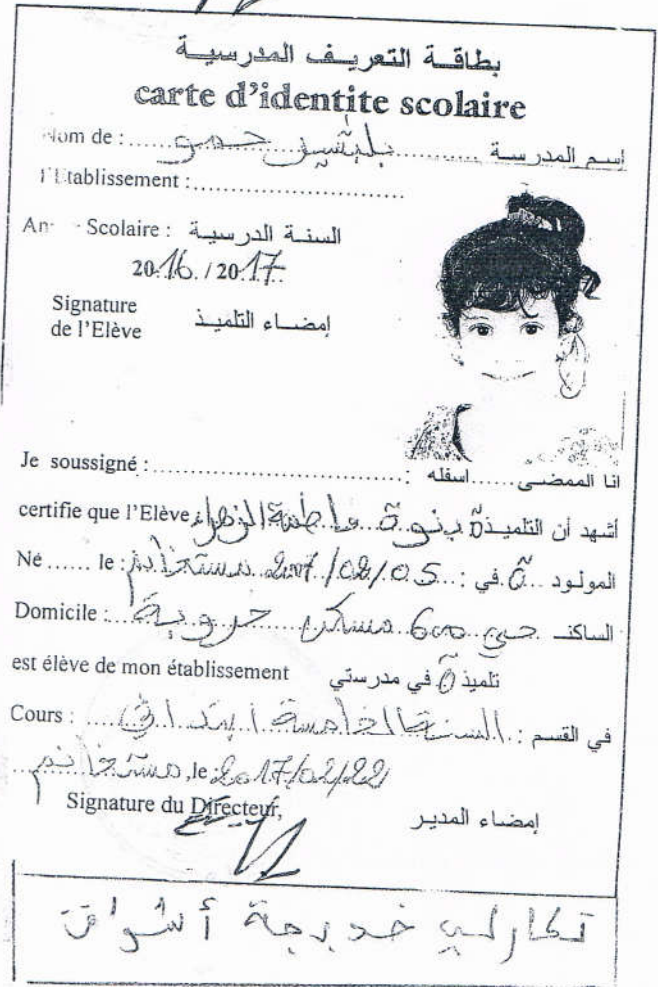 بطاقة التعريف المدرسية
carte d'identite scolaire
Nom de : بلبشير حمو إسم المدرسة
l'Etablissement :
Scolaire : السنة الدرسية
2016 / 2017
Signature
de l'Elève إمضاء التلميذ
Je soussigné : انا الممضى اسفله :
certifie que l'Elève أشهد أن التلميذة بنوة فاطمة الزهراء
Né ...... le : المولود ة في : 2007/02/05 مستغانم
Domicile : الساكن حي 600 مسكن خروبة
est élève de mon établissement تلميذ ة في مدرستي
Cours : في القسم : السنة الخامسة ابتدائي
مستغانم ,le : 2017/02/22
Signature du Directeur, إمضاء المدير
تكارلي خديجة أشواق